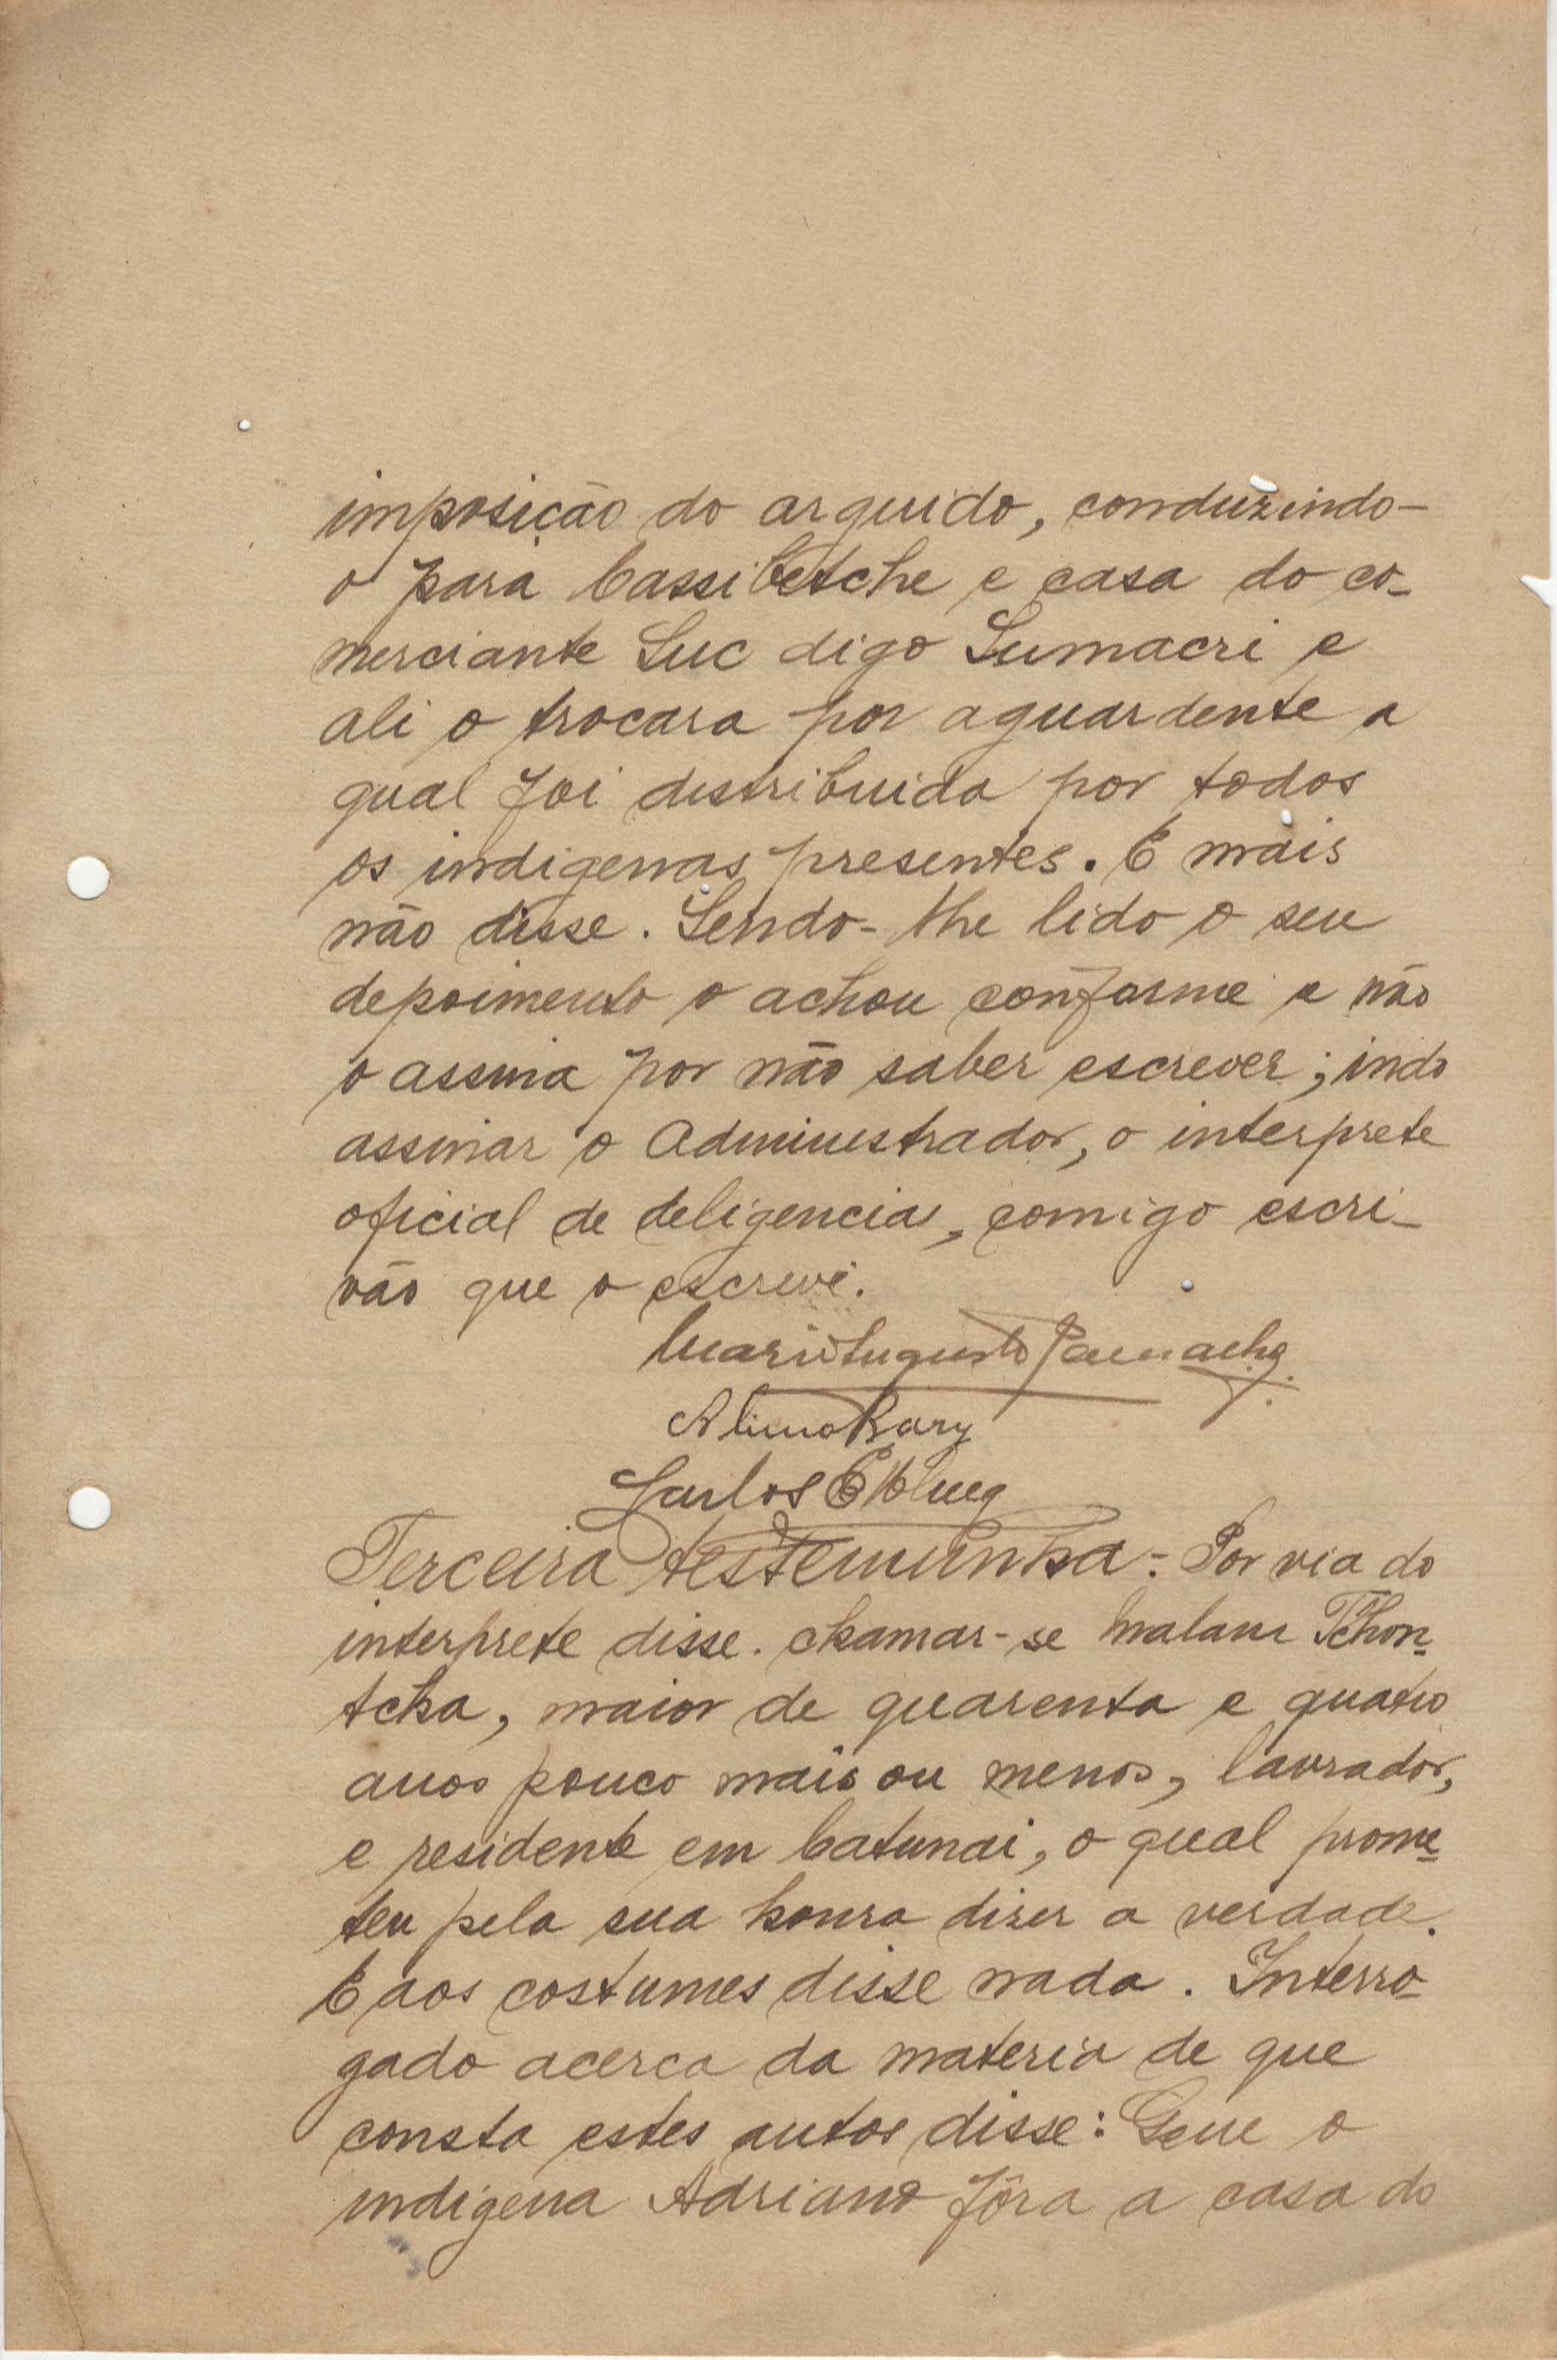 imposição do arguido, conduzindo-
o para Cassibetche e casa do co-
merciante Luc digo Sumacri e
ali o trocara por aguardente a
qual foi distribuida por todos
os indigenas presentes. E mais
não disse. Sendo-lhe lido o seu
depoimento o achou conforme e não
o assina por não saber escrever; indo
assinar o Administrador, o interprete
oficial de deligencias, comigo escri-
vão que o escrevi.
Mario Augusto
Carlos
Terceira testemunha - Por via do
interprete disse. chamar-se Malam Tchon-
tcha, maior de quarenta e quatro
anos pouco mais ou menos, lavrador,
e residente em Catunai, o qual prome-
teu pela sua honra dizer a verdade.
E aos costumes disse nada. Interro-
gado acerca da materia de que
consta estes autos disse: Que o
indigena Adriano fôra a casa do